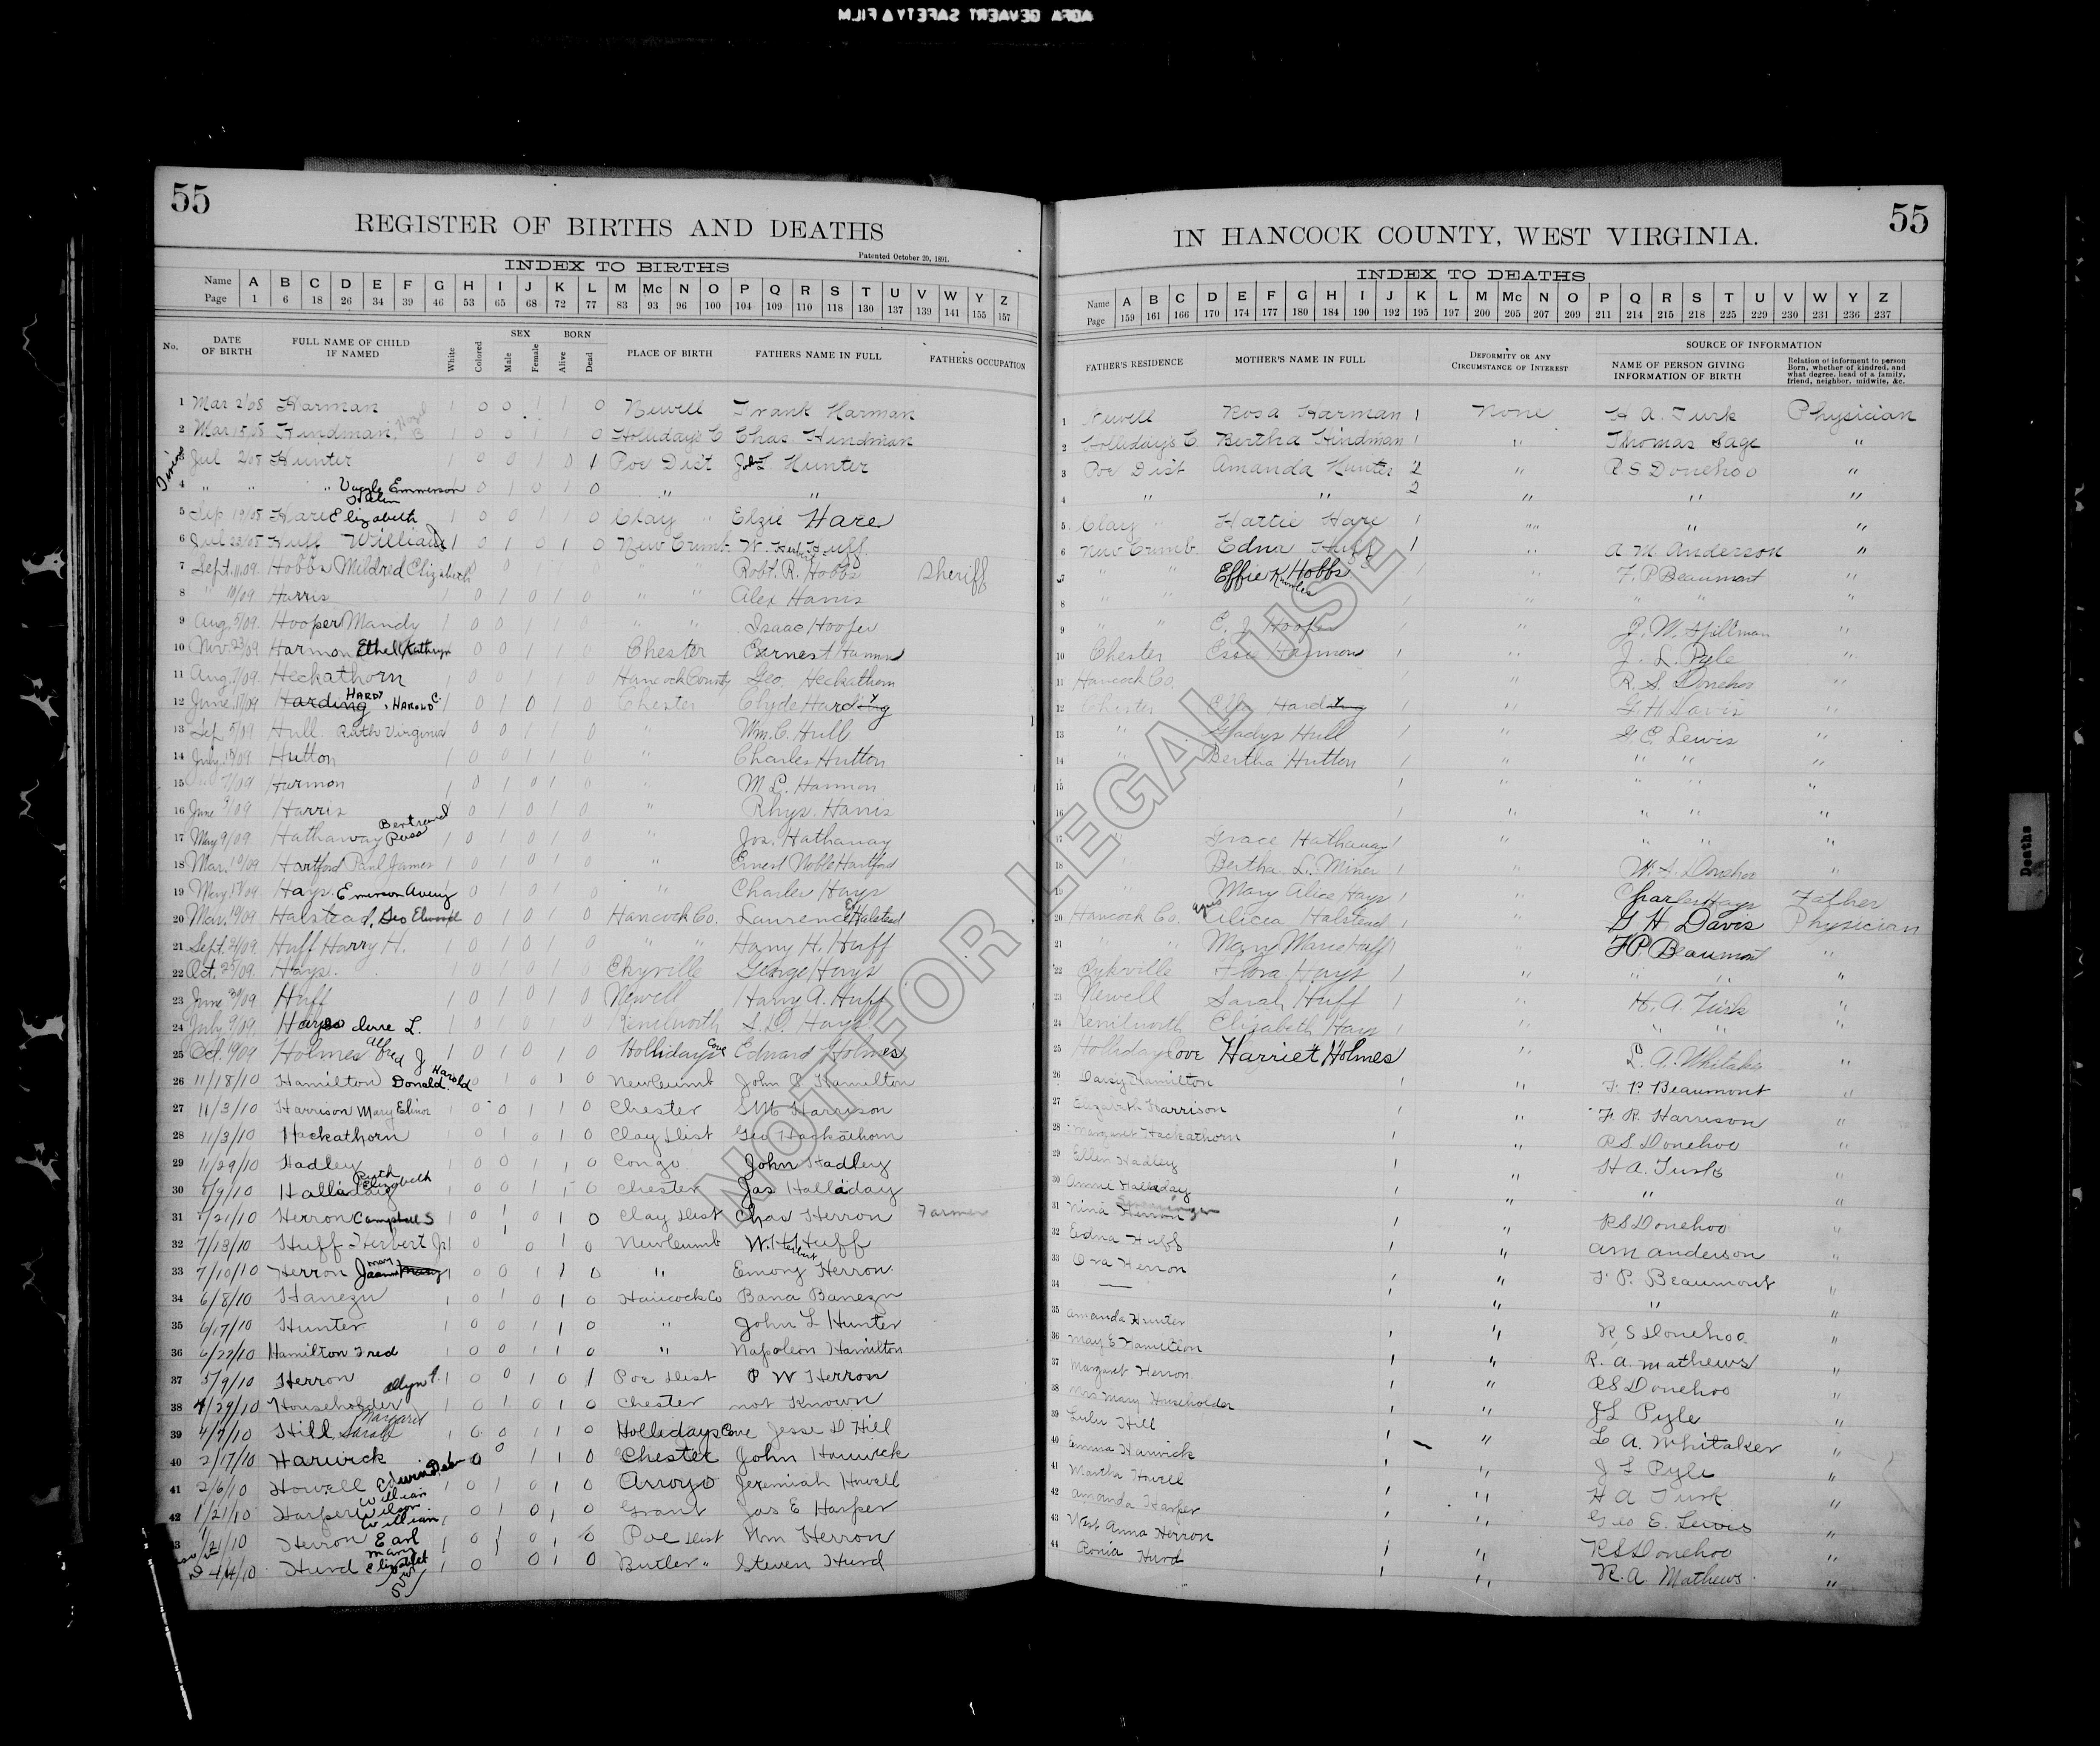 AGFA GEVAERT SAFETY FILM
55
REGISTER OF BIRTHS AND DEATHS
Patented October 20, 1891.
INDEX TO BIRTHS
Name A B C D E F G H I J K L M Mc N O P Q R S T U V W Y Z
Page 1 6 18 26 34 39 46 53 65 68 72 77 83 93 96 100 104 109 110 118 130 137 139 141 155 157
No. DATE OF BIRTH FULL NAME OF CHILD IF NAMED White Colored SEX Male Female BORN Alive Dead PLACE OF BIRTH FATHERS NAME IN FULL FATHERS OCCUPATION
1 Mar 2/08 Harman 1 0 0 1 1 0 Newell Frank Harman
2 Mar 15,08 Hindman, Hazel B 1 0 0 1 1 0 Hollidays C Chas Hindman
3 Jul 2/08 Hunter 1 0 0 1 0 1 Poe Dist John L. Hunter
4 " " " Emmerson 1 0 1 0 1 0 " "
5 Sep 19/08 Hare Helen Elizabeth 1 0 0 1 1 0 Clay " Elzie Hare
6 Jul 23/08 Huff William 1 0 1 0 1 0 New Cumb. W. Herbert Huff
7 Sept. 11,09. Hobbs Mildred Elizabeth 0 0 1 1 0 " " Robt. R. Hobbs Sheriff
8 " 10/09 Harris 1 0 1 0 1 0 " " Alex Harris
9 Aug. 5/09. Hooper Mandy 1 0 0 1 1 0 " " Isaac Hooper
10 Nov. 23/09 Harmon Ethel Kathryn 0 0 1 1 0 Chester Earnest Harmon
11 Aug. 9/09. Heckathorn 1 0 0 1 1 0 Hancock County Geo. Heckathorn
12 June 17/09 Harding HARDY, HAROLD C. 1 0 1 0 1 0 Chester Clyde Hardy
13 Sep 5/09 Hull. Ruth Virginia 0 0 1 1 0 " Wm. C. Hull
14 July 18/09 Hutton 1 0 0 1 1 0 " Charles Hutton
15 7/09 Harmon 1 0 1 0 1 0 " M. L. Harmon
16 June 3/09 Harris 1 0 1 0 1 0 " Rhys. Harris
17 May 9/09 Hathaway Bertrand Ross 1 0 1 0 1 0 " Jos. Hathaway
18 Mar. 10/09 Hartford Paul James 1 0 1 0 1 0 " Ernest Noble Hartford
19 May 17/09. Hays. Emerson Avery 0 1 0 1 0 " Charles Hays
20 Mar. 19/09 Halstead, Geo Elwood 0 1 0 1 0 Hancock Co. Laurence E Halstead
21 Sept. 21/09. Huff Harry H. 1 0 1 0 1 0 " " Harry H. Huff
22 Oct. 25/09. Hays. 1 0 1 0 1 0 Chyville George Hays
23 June 30/09 Huff 1 0 1 0 1 0 Newell Harry A. Huff
24 July 9/09. Hays L. 1 0 0 1 0 Kenilworth S. D. Hays
25 Oct. 19/09 Holmes Alfred J 1 0 1 0 1 0 Hollidays Cove Edward Holmes
26 11/18/10 Hamilton Donald Harold 0 1 0 1 0 New Cumb John P Hamilton
27 11/3/10 Harrison Mary Elinor 1 0 0 1 1 0 Chester S M Harrison
28 11/3/10 Hackathorn 1 0 1 0 1 0 Clay Dist Geo Hackathorn
29 11/29/10 Hadley 1 0 0 1 1 0 Congo John Hadley
30 8/9/10 Halladay Ruth Elizabeth 1 0 0 1 1 0 Chester Jas Halladay
31 7/21/10 Herron Campbell S 1 0 1 0 1 0 Clay Dist Chas Herron Farmer
32 7/13/10 Huff Herbert Jr 1 0 1 0 1 0 New Cumb W. Herbert Huff
33 7/10/10 Herron Mary 1 0 0 1 1 0 " Emory Herron
34 6/8/10 Hanezn 1 0 1 0 1 0 Hancock Co Bana Banezn
35 6/17/10 Hunter 1 0 0 1 1 0 " John L Hunter
36 6/22/10 Hamilton Fred 1 0 0 1 1 0 " Napoleon Hamilton
37 5/9/10 Herron 1 0 0 1 0 1 Poe Dist P W Herron
38 4/29/10 Householder 1 0 1 0 1 0 Chester not Known
39 4/7/10 Hill, Sarah Margaret 1 0 0 1 1 0 Hollidays Cove Jesse D Hill
40 2/17/10 Harwick 0 0 1 1 0 Chester John Harwick
41 2/6/10 Howell Edwin 1 0 1 0 1 0 Arroyo Jeremiah Howell
42 1/21/10 Harper William Wilson 0 1 0 1 0 Grant Jas E Harper
1/21/10 Herron William Earl 1 0 1 0 1 0 Poe Dist Wm Herron
4/4/10 Hurd Mary Elizabeth 1 0 0 1 0 Butler " Steven Hurd
55
IN HANCOCK COUNTY, WEST VIRGINIA.
INDEX TO DEATHS
Name A B C D E F G H I J K L M Mc N O P Q R S T U V W Y Z
Page 159 161 166 170 174 177 180 184 190 192 195 197 200 205 207 209 211 214 215 218 225 229 230 231 236 237
FATHER'S RESIDENCE MOTHER'S NAME IN FULL DEFORMITY OR ANY CIRCUMSTANCE OF INTEREST SOURCE OF INFORMATION NAME OF PERSON GIVING INFORMATION OF BIRTH Relation of informent to person Born, whether of kindred, and what degree, head of a family, friend, neighbor, midwife, &c.
1 Newell Rosa Harman 1 None H A. Turk Physician
2 Hollidays C. Bertha Hindman 1 " Thomas Sage "
3 Poe Dist Amanda Hunter 2 " R S Donehoo "
4 " " 2 " " "
5 Clay " Hattie Hare 1 " " "
6 New Cumb. Edna Huff 1 " A. M. Anderson "
7 " " Effie Knowles Hobbs 1 " F. P Beaumont "
8 " " 1 " " "
9 " " E. J. Hooper 1 " J. W. Spillman "
10 Chester Essie Harmon 1 " J. L. Pyle "
11 Hancock Co. 1 " R. S. Donehoo "
12 Chester Ella Hardy 1 " G. H. Davis "
13 " Gladys Hull 1 " G. E. Lewis "
14 " Bertha Hutton 1 " " " "
15 1 " " " "
16 1 " " " "
17 " Grace Hathaway 1 " " " "
18 " Bertha L. Miner 1 " W. S. Donehoo "
19 " Mary Alice Hays 1 " Charles Hays Father
20 Hancock Co. Agnes Alicea Halstead 1 " G H Davis Physician
21 " " Mary Marie Huff 1 " F P. Beaumont "
22 Pykville Flora Hays 1 " " " "
23 Newell Sarah Huff 1 " H. A. Turk "
24 Kenilworth Elizabeth Hays 1 " " " "
25 Holliday Cove Harriet Holmes " L. A. Whitaker "
26 Daisy Hamilton 1 " F. P. Beaumont "
27 Elizabeth Harrison 1 " F. R. Harrison "
28 Margaret Hackathorn 1 " R S. Donehoo "
29 Ellen Hadley 1 " H A. Turk "
30 Annie Halladay 1 " " "
31 Nina Herron 1 " R S Donehoo "
32 Edna Huff 1 " A M Anderson "
33 Ora Herron 1 " F. P. Beaumont "
34 — 1 " " "
35 Amanda Hunter 1 " R S Donehoo "
36 May E Hamilton 1 " R. A. Mathews "
37 Margaret Herron 1 " R S Donehoo "
38 Mrs Mary Householder 1 " J L Pyle "
39 Lulu Hill 1 " L A. Whitaker "
40 Emma Harwick 1 " J L Pyle "
41 Martha Howell 1 " H A Turk "
42 Amanda Harper 1 " Geo E. Lewis "
43 West Anna Herron 1 " R S Donehoo "
44 Ronia Hurd 1 " R. A. Mathews "
NOT FOR LEGAL USE
Deaths